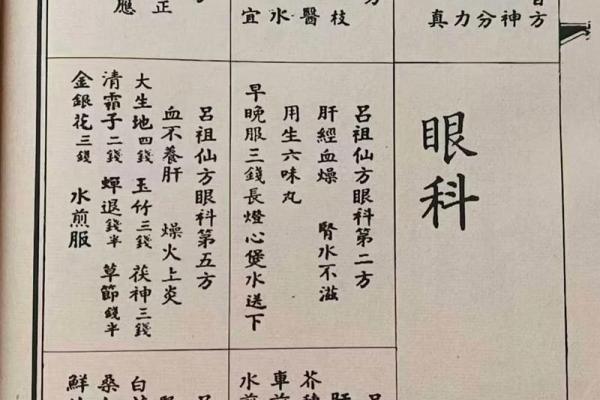 方
神
分
力
真
枝
醫
水
宜
正
應
眼科
呂祖仙方眼科第二方
肝經血燥 腎水不滋
用生六味丸
早晚服三錢長燈心煲水送下
呂祖仙方眼科第五方
血不養肝 燥火上炎
大生地四錢 玉竹三錢 茯神三錢
清霜子二錢 蟬退錢半 草節錢半
金銀花三錢 水煎服
呂
芥
車前
水
呂
白
桑
鮮